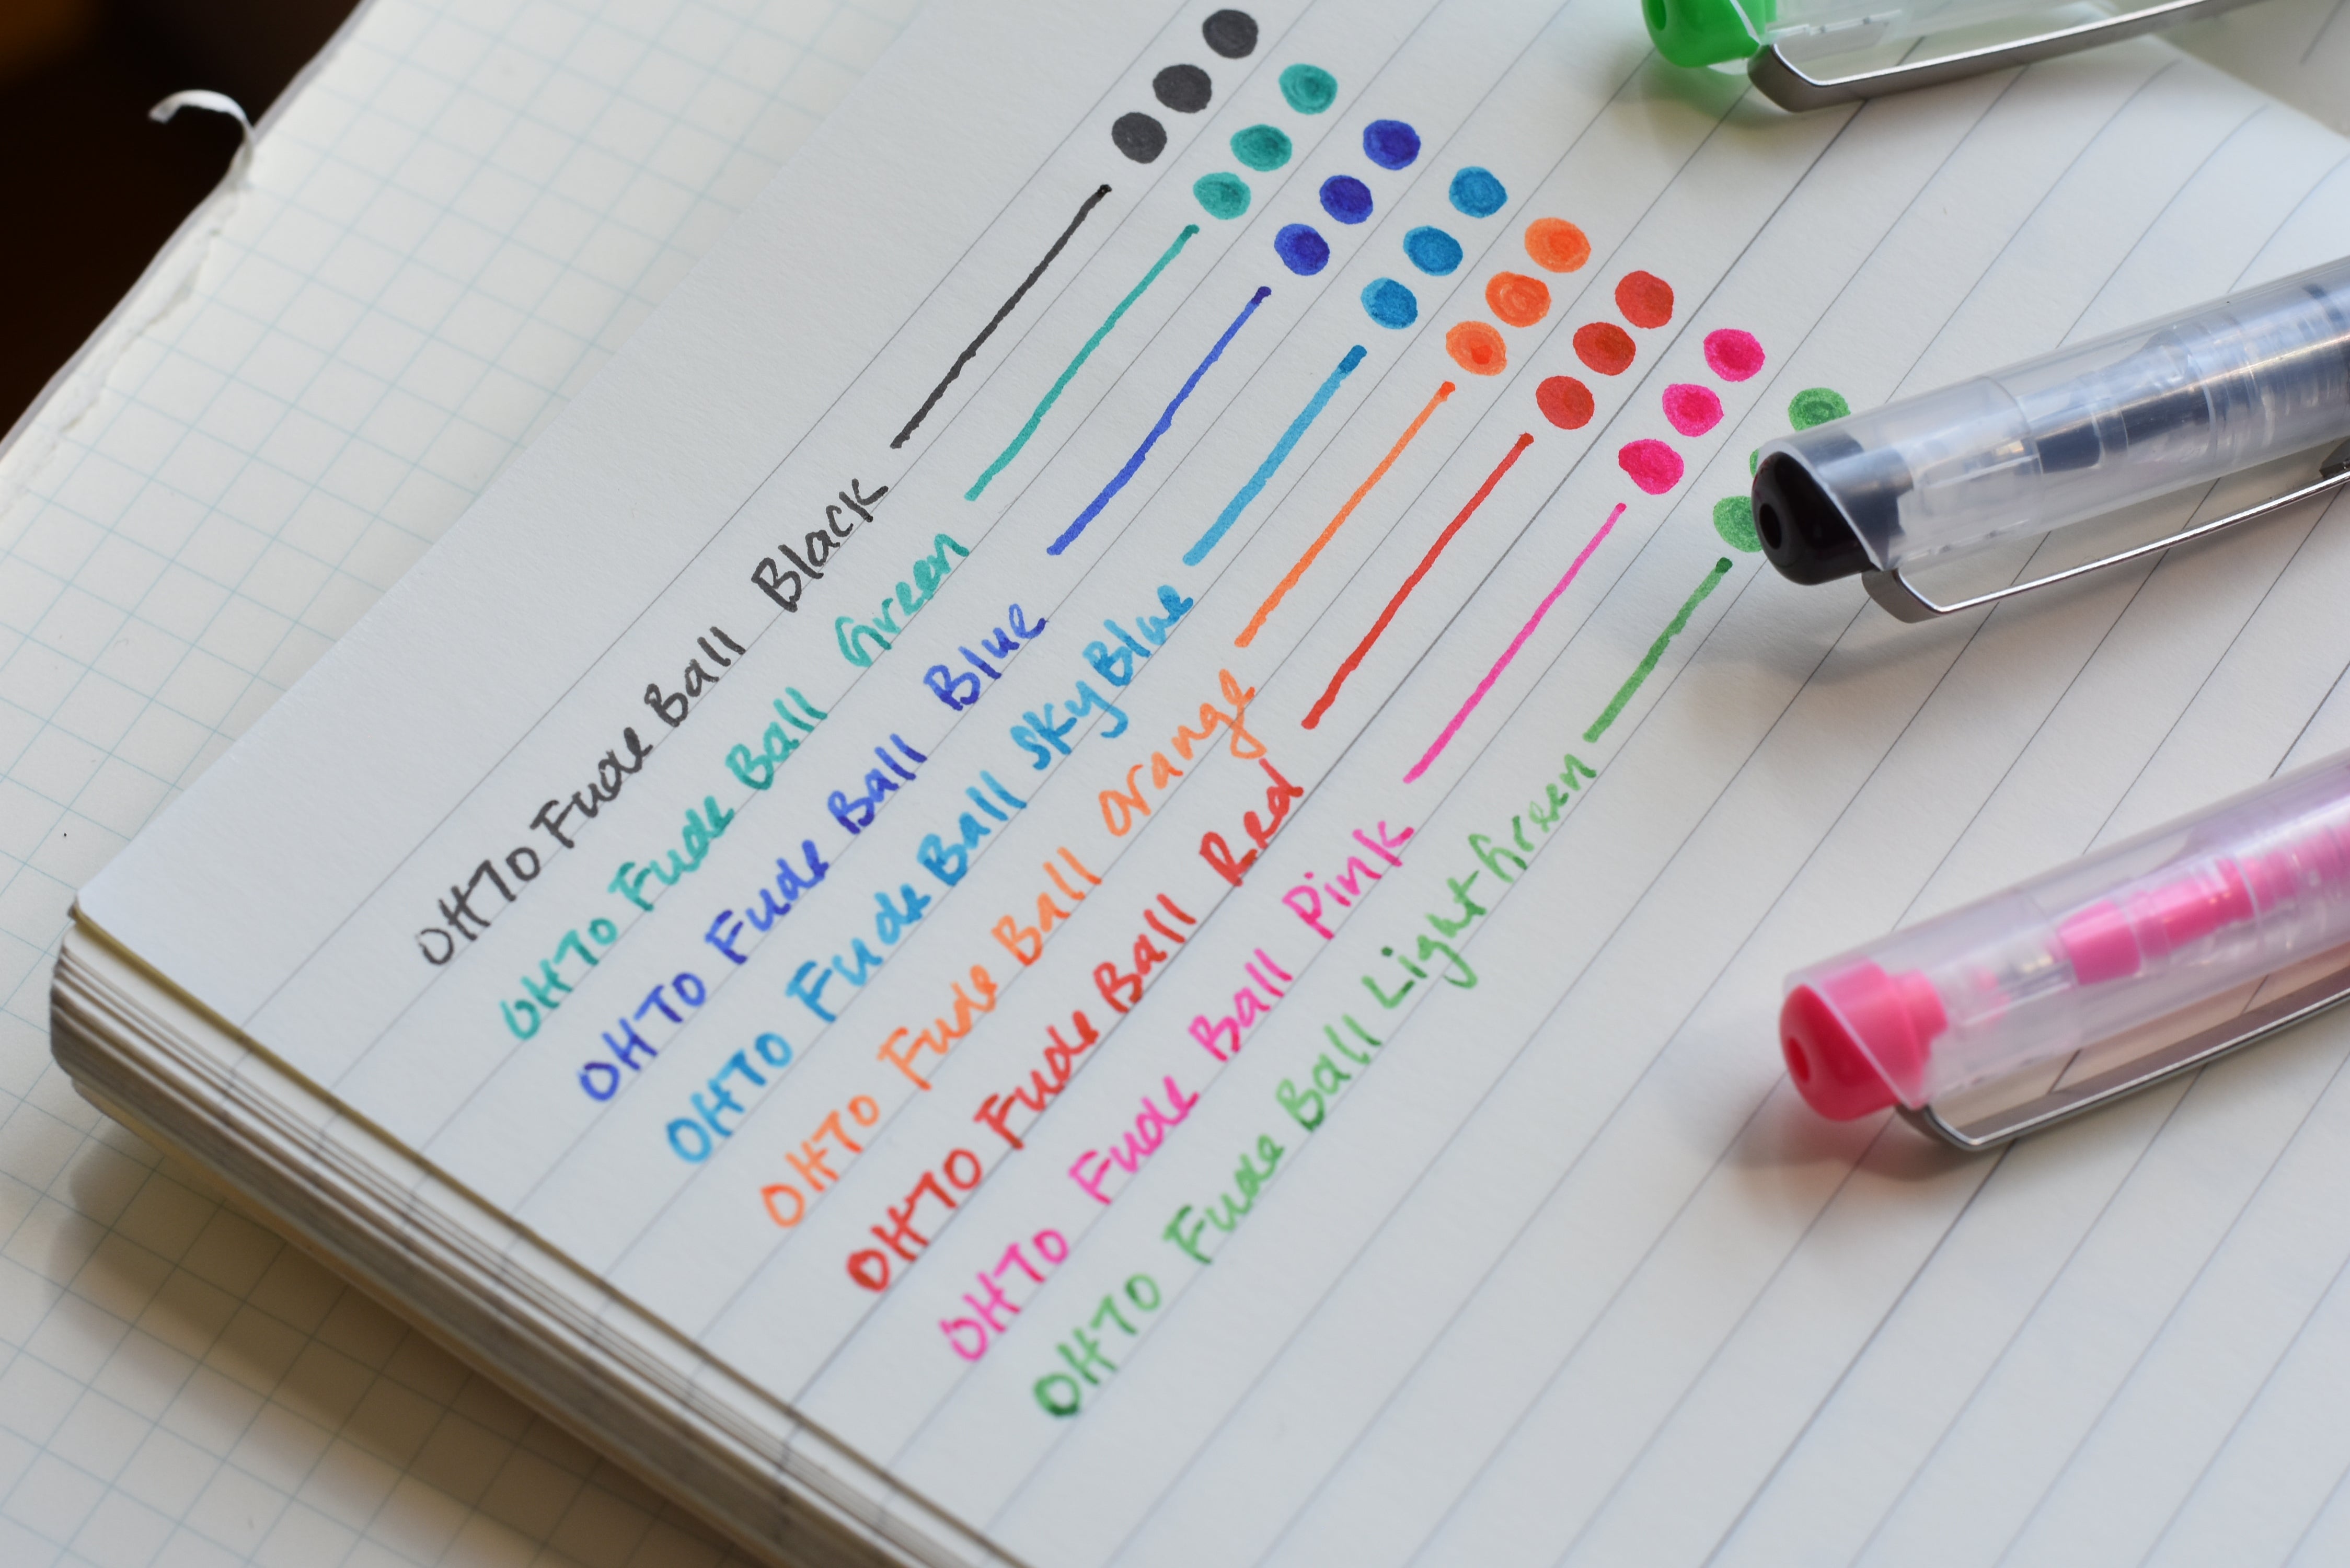 OHTO Fude Ball Black
OHTO Fude Ball Green
OHTO Fude Ball Blue
OHTO Fude Ball Sky Blue
OHTO Fude Ball Orange
OHTO Fude Ball Red
OHTO Fude Ball Pink
OHTO Fude Ball Light Green